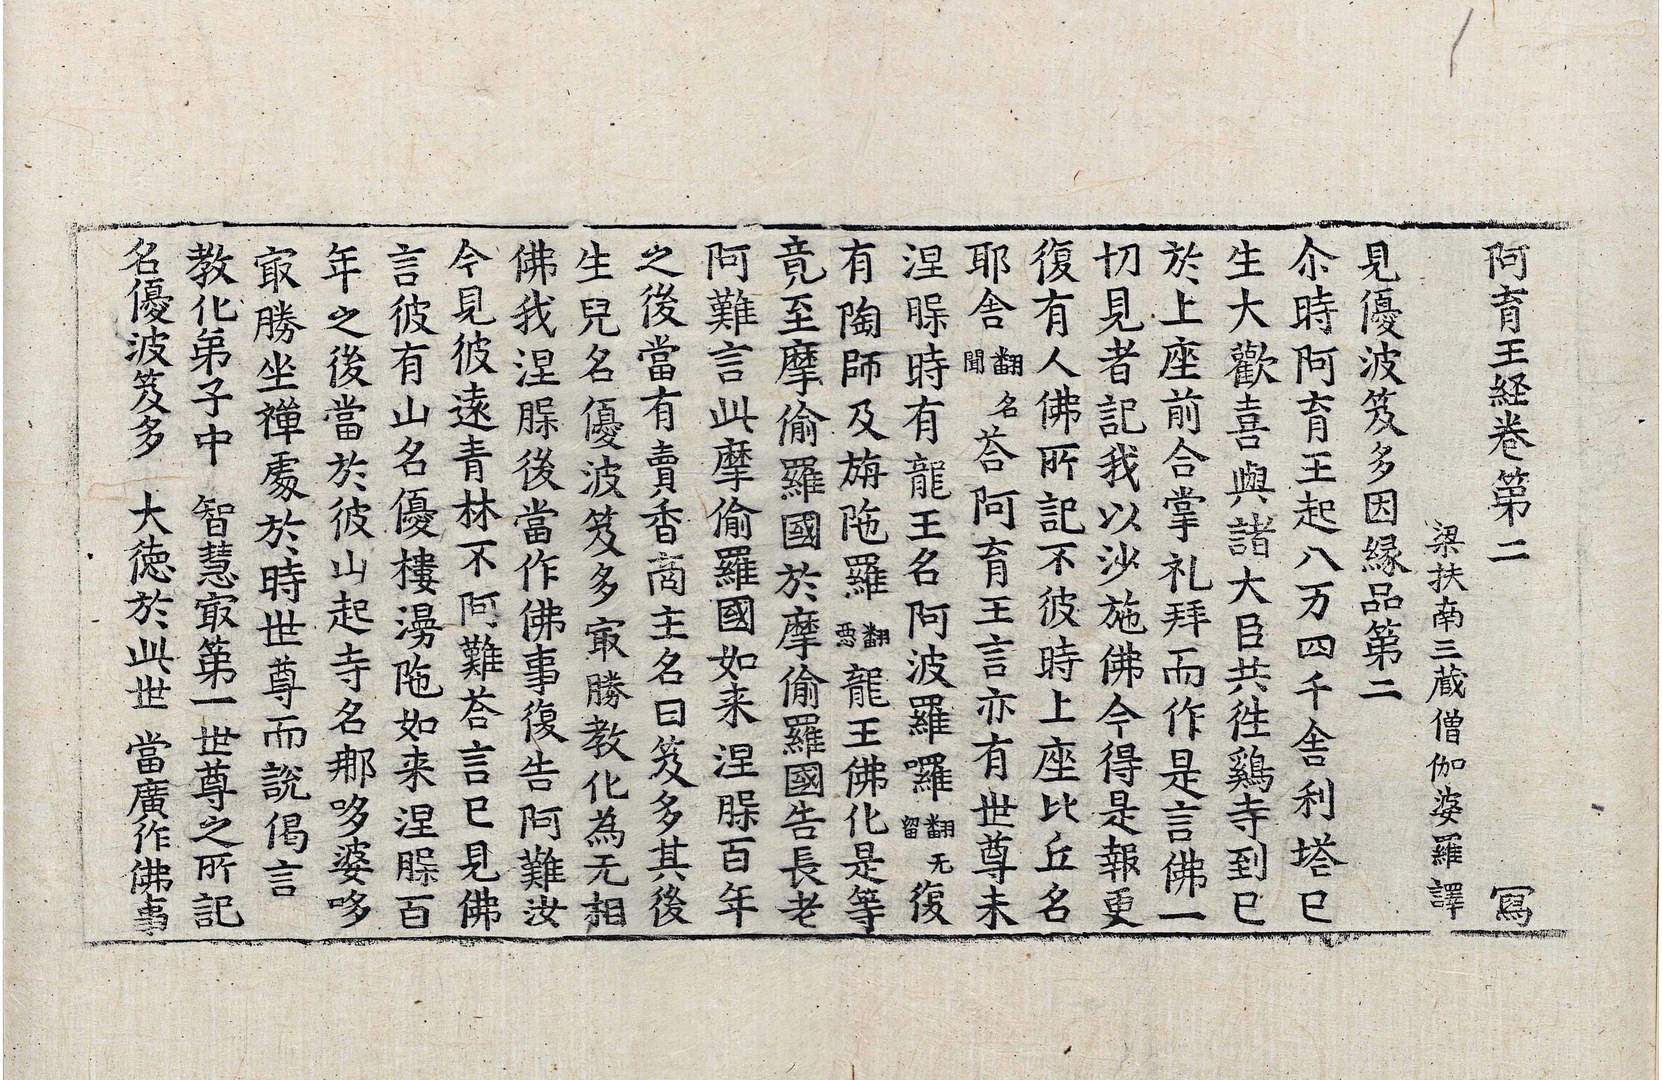 阿育王経巻第二　寫
梁扶南三蔵僧伽婆羅譯
見優波笈多因縁品第二
尒時阿育王起八万四千舍利塔已
生大歡喜與諸大臣共徃鷄寺到已
於上座前合掌礼拜而作是言佛一
切見者記我以沙施佛今得是報更
復有人佛所記不彼時上座比丘名
耶舍翻名聞荅阿育王言亦有世尊未
涅槃時有龍王名阿波羅囉翻无留復
有陶師及旃陁羅翻惡龍王佛化是等
竟至摩偷羅國於摩偷羅國告長老
阿難言此摩偷羅國如来涅槃百年
之後當有賣香商主名曰笈多其後
生兒名優波笈多㝡勝教化為无相
佛我涅槃後當作佛事復告阿難汝
今見彼遠青林不阿難荅言已見佛
言彼有山名優樓漫陁如来涅槃百
年之後當於彼山起寺名那哆婆哆
㝡勝坐禪處於時世尊而説偈言
教化弟子中　智慧㝡第一世尊之所記
名優波笈多　大徳於此世　當廣作佛事